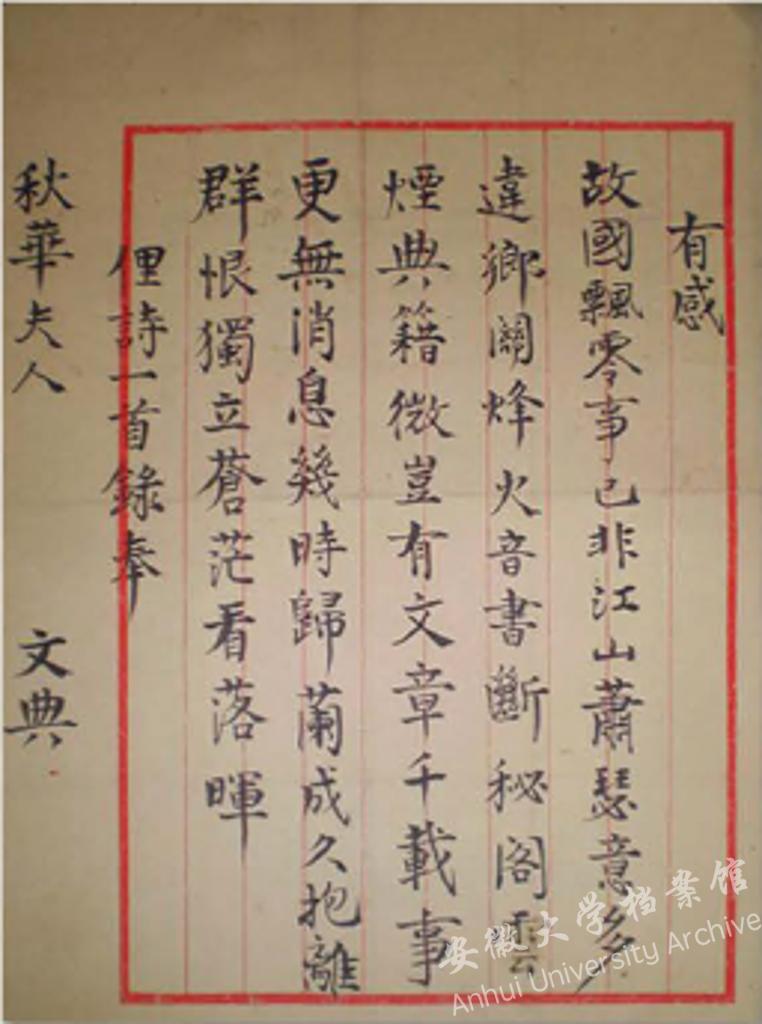 有感
故國飄零事已非江山蕭瑟意多
違鄉關烽火音書斷秘閣雲
煙典籍微豈有文章千載事
更無消息幾時歸蘭成久抱離
群恨獨立蒼茫看落暉
俚詩一首錄奉
秋華夫人 文典
安徽大学档案馆
Anhui University Archive